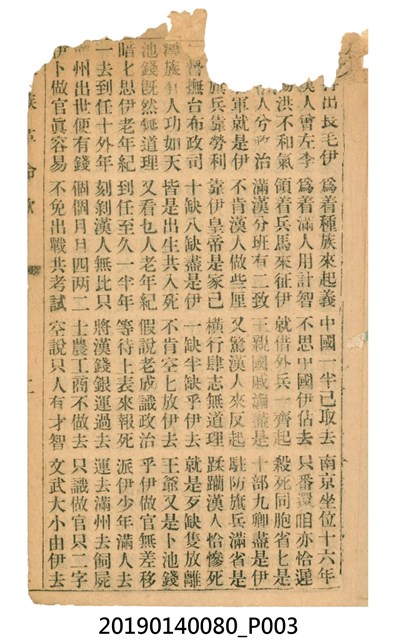 出長毛伊 為着種族來起義 中國一半已取去 南京坐位十六年
漢人曾左李 為着滿人用計智 不思中國伊佔去 只番還咱亦恰遑
洪不和氣 領着兵馬來征伊 就借外兵一齊起 殺死同胞省七是
人兮政治 滿漢分班有二致 王親國戚滿盡是 十部九卿盡是伊
軍就是伊 不肯漢人做些厘 又驚漢人來反起 駐防旗兵滿省是
旗兵靠勢利 靠伊皇帝是家己 橫行肆志無道理 蹂躪漢人恰慘死
督撫台布政司 十缺八缺盡是伊 一缺半缺乎伊去 就是歹缺隻放離
滿族人功如天 皆是出生共入死 不肯空七放伊去 王爺又是卜池錢
池錢既然無道理 又看乜人老年紀 假說老成識政治 乎伊做官無差移
暗七思伊老年紀 到任至久一半年 等待上表來報死 派伊少年滿人去
一去到任十外年 刻剝漢人無比只 將漢錢銀運過去 運去滿州去飼屍
州出世便有錢 個個月月四兩二 士農工商不做去 只識做官只二字
伊卜做官眞容易 不免出戰共考試 空說只人有才智 文武大小由伊去
族革命歌
二
20190140080_P003